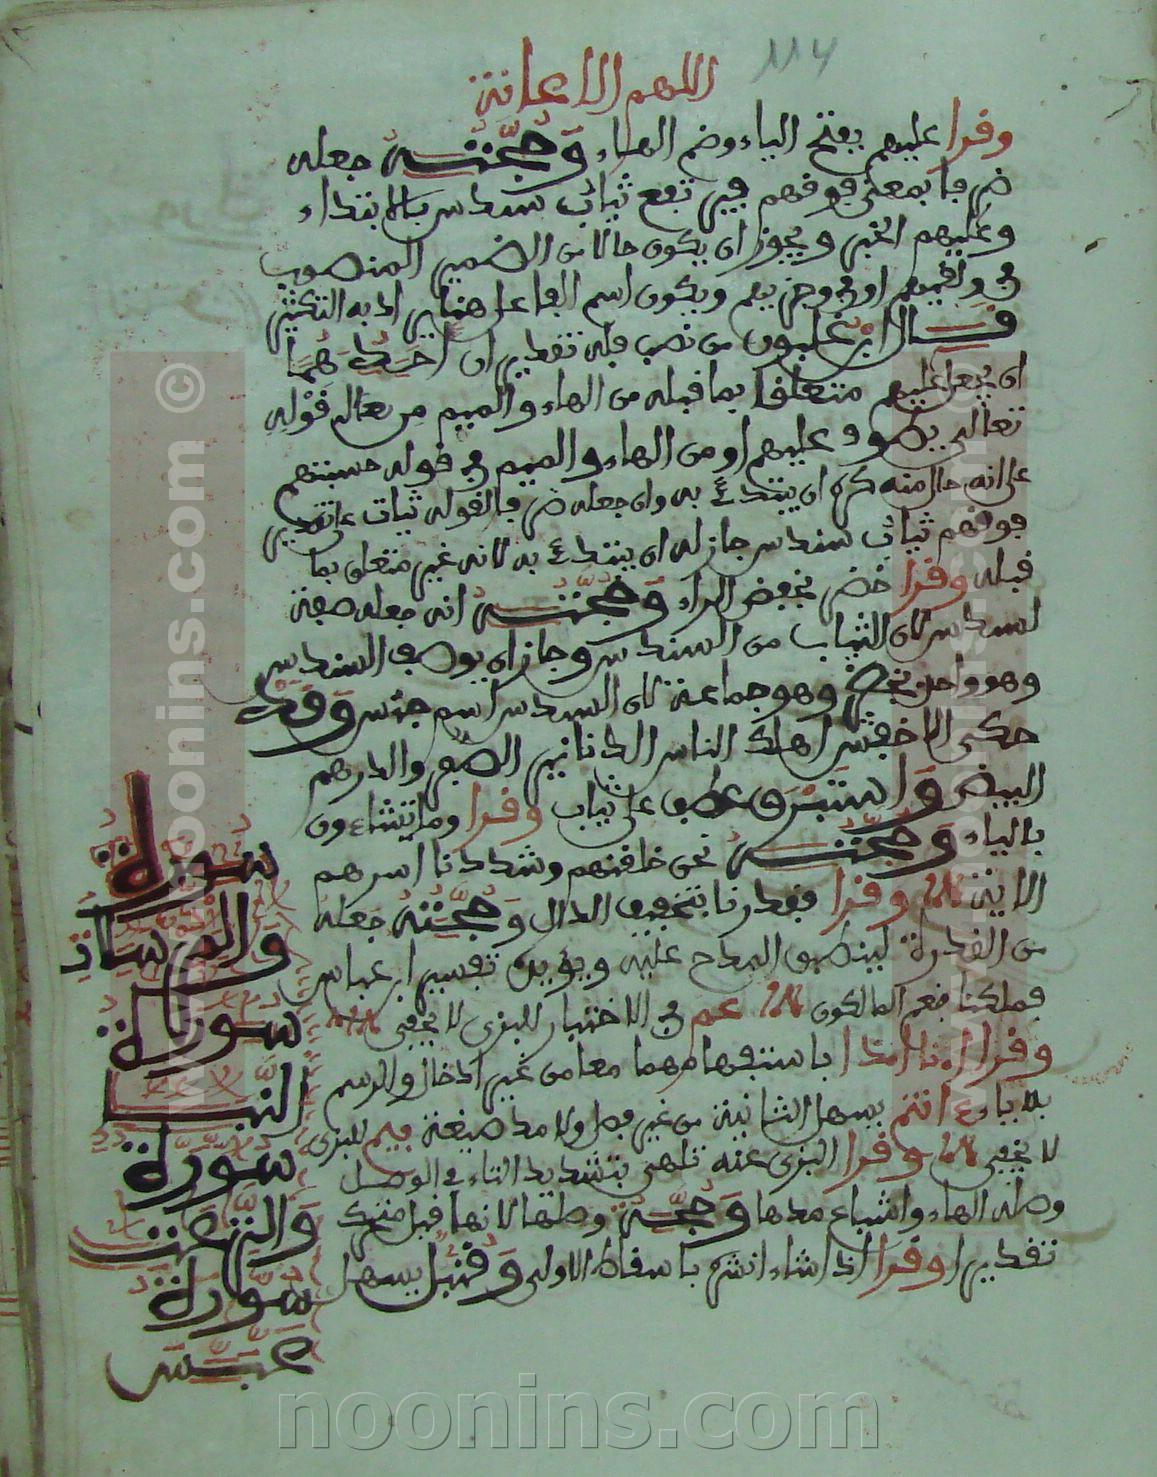 114
اللهم الاعانة
وقرا عليهم بفتح الياء وضم الهاء وحجته جعله
ظرفا بمعنى فوقهم فيرتفع ثياب سندس بالابتداء
وعليهم الخبر ويجوز ان يكون حالا من الضمير المنصوب
في ولقيهم او في وجزيهم ويكون اسم الفاعل هنا يراد به التكثير
قال ابن غلبون من نصب فله تقديران احدهما
ان يجعل عليهم متعلقا بما قبله من الهاء والميم من قوله
تعالى يطوف عليهم او من الهاء والميم في قوله حسبتهم
على انه حال منه كره ان يبتدئ به وان جعله ظرفا لقوله ثياب على تقدير
فوقهم ثياب سندس جاز له ان يبتدئ به لانه غير متعلق بما
قبله وقرا خضر بخفض الراء وحجته انه جعله صفة
لسندس لان الثياب من السندس وجاز ان يوصف السندس
وهو واحد بخضر وهو جماعة لان السندس اسم جنس وقد
حكى الاخفش اهلك الناس الدنانير الصفر والدرهم
البيض واستبرق عطف على ثياب وقرا وما تشاءون
بالياء وحجته نحن خلقنهم وشددنا اسرهم
الاية وقرا فقدرنا بتخفيف الدال وحجته جعله
من القدرة لينطبق المدح عليه ويؤيده تفسير ابن عباس
فملكنا فنعم المالكون عم في الاختبار للبزى لا يخفى
وقرا انا اذا باستفهامهما معا من غير ادخال والرسم
بلا ياء ءانتم بسهل الثانية من غير فصل ولا مد صيغة فيم للبزى
لا يخفى وقرا البزى عنه تلهى بتشديد التاء في الوصل
وصله الهاء واشباع مدها وحجته وصلها لانها قبل متحرك
تقديرا وقرا اذا شاء انشره باسقاط الاولى وقنبل يسهل
سورة
والمرسلات
سورة
النبا
سورة
والنزعت
سورة
عبس
© noonins.com
© noonins.com
noonins.com